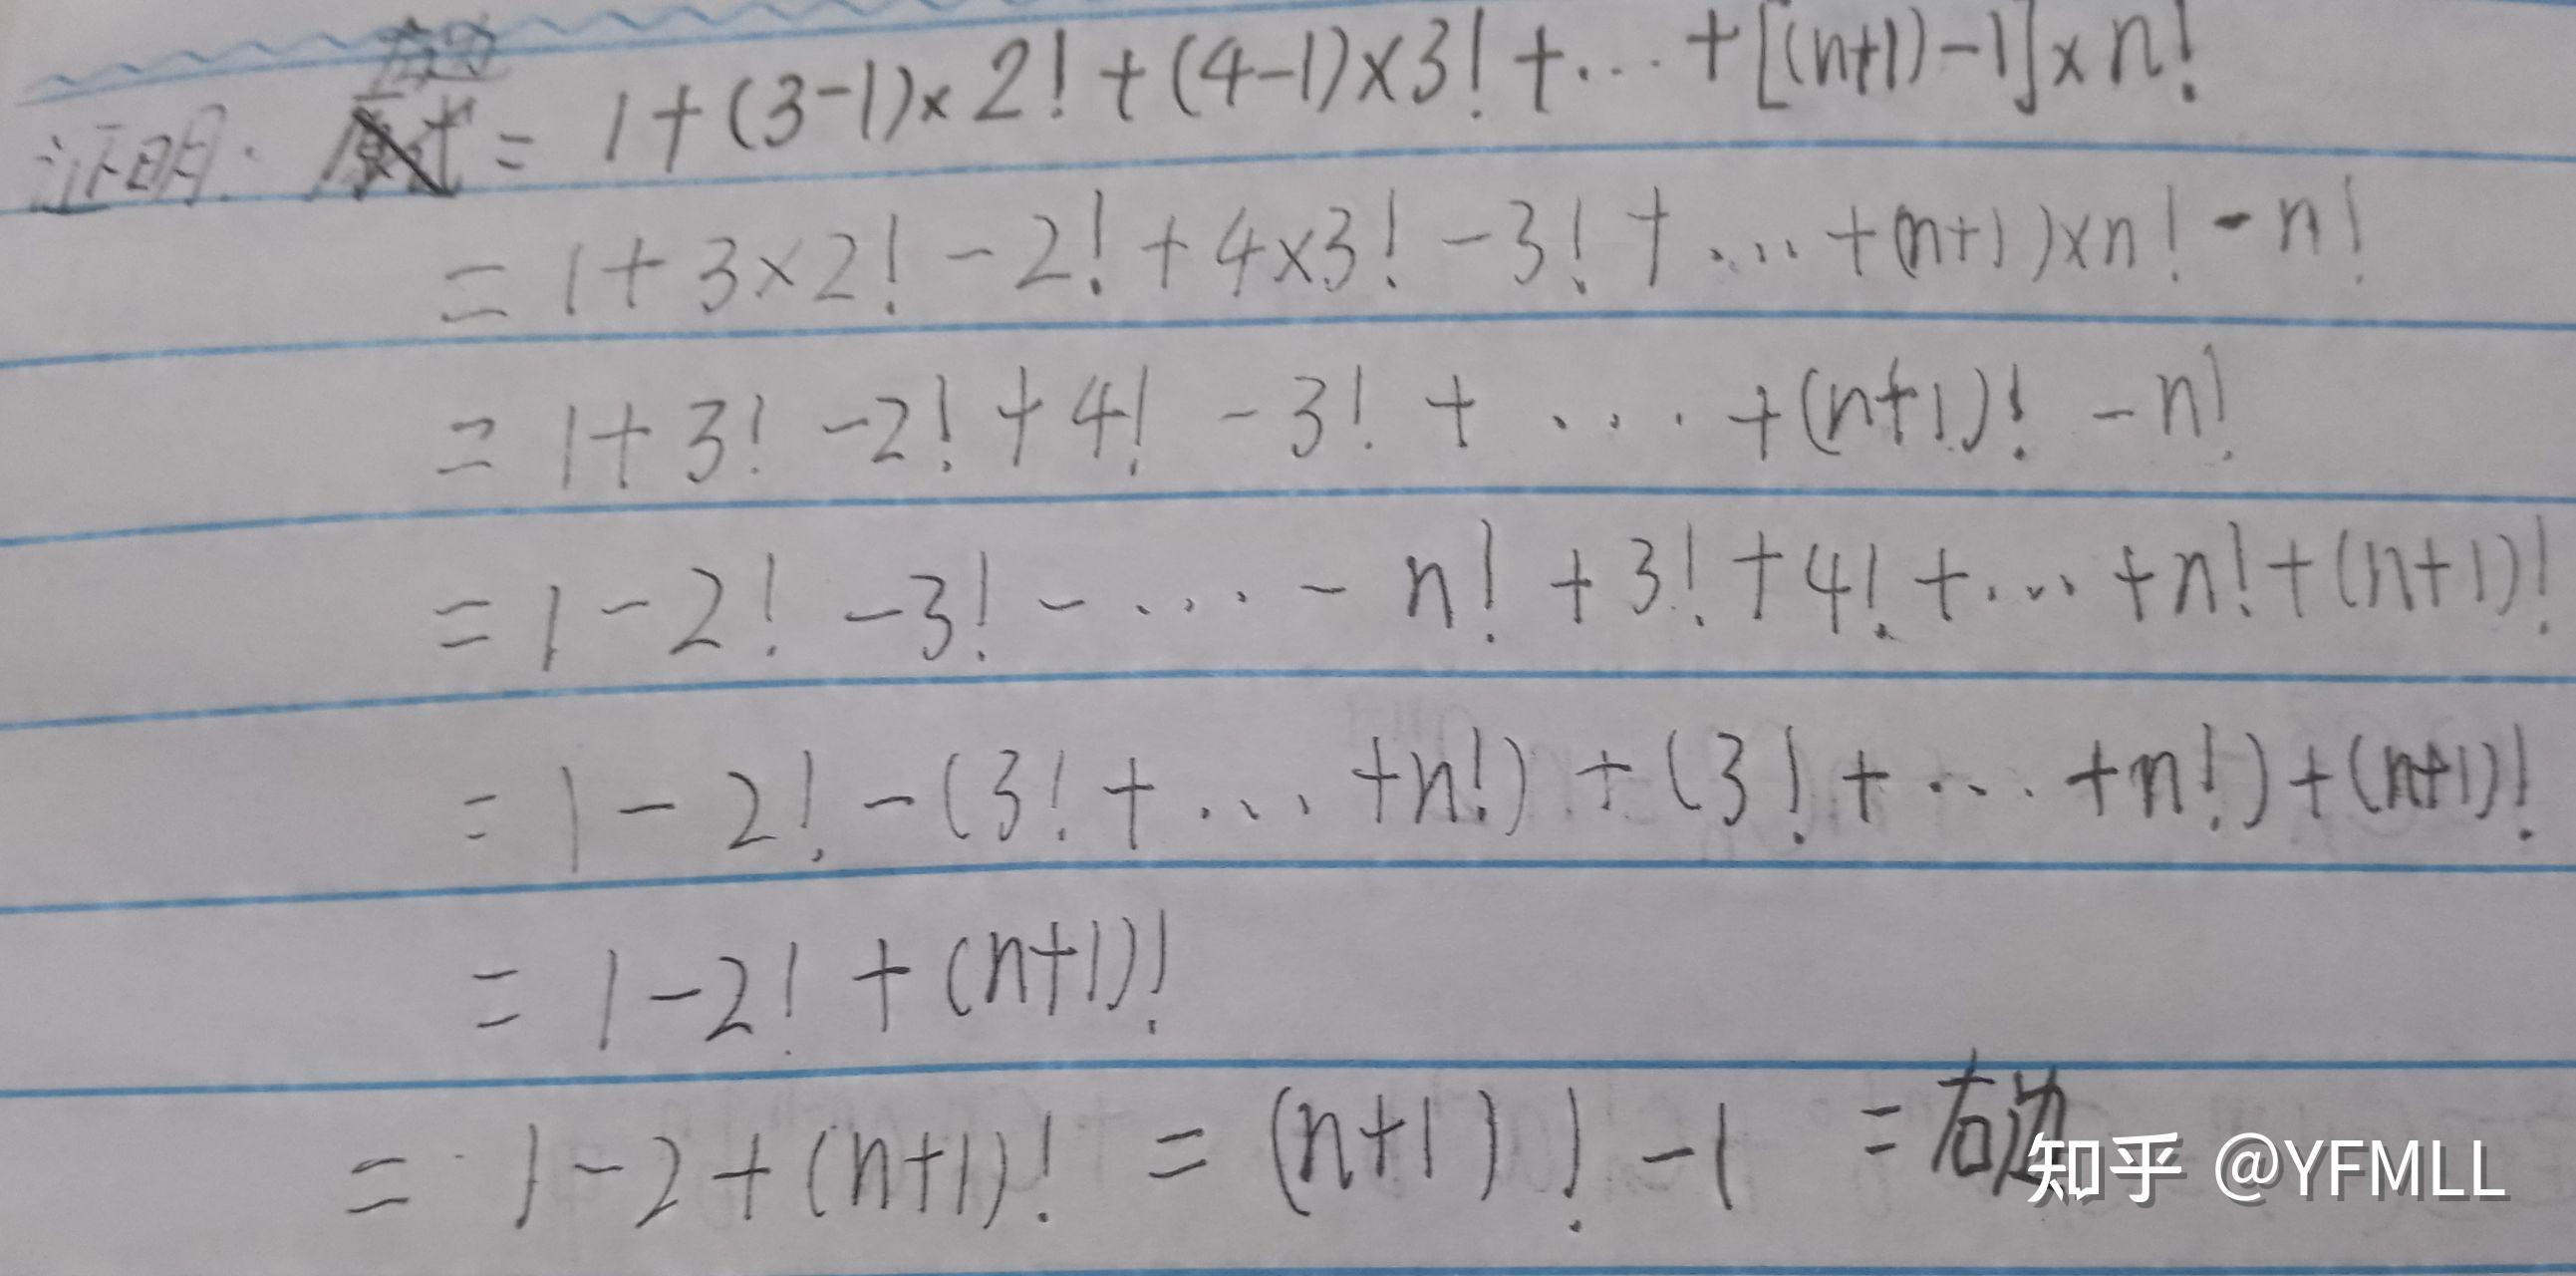 左边
证明: = 1+(3-1)×2!+(4-1)×3!+...+[(n+1)-1]×n!
= 1+3×2!-2!+4×3!-3!+....+(n+1)×n!-n!
= 1+3!-2!+4!-3!+....+(n+1)!-n!
= 1-2!-3!-....-n!+3!+4!+...+n!+(n+1)!
= 1-2!-(3!+...+n!)+(3!+...+n!)+(n+1)!
= 1-2!+(n+1)!
= 1-2+(n+1)! = (n+1)!-1 = 右边
知乎 @YFMLL